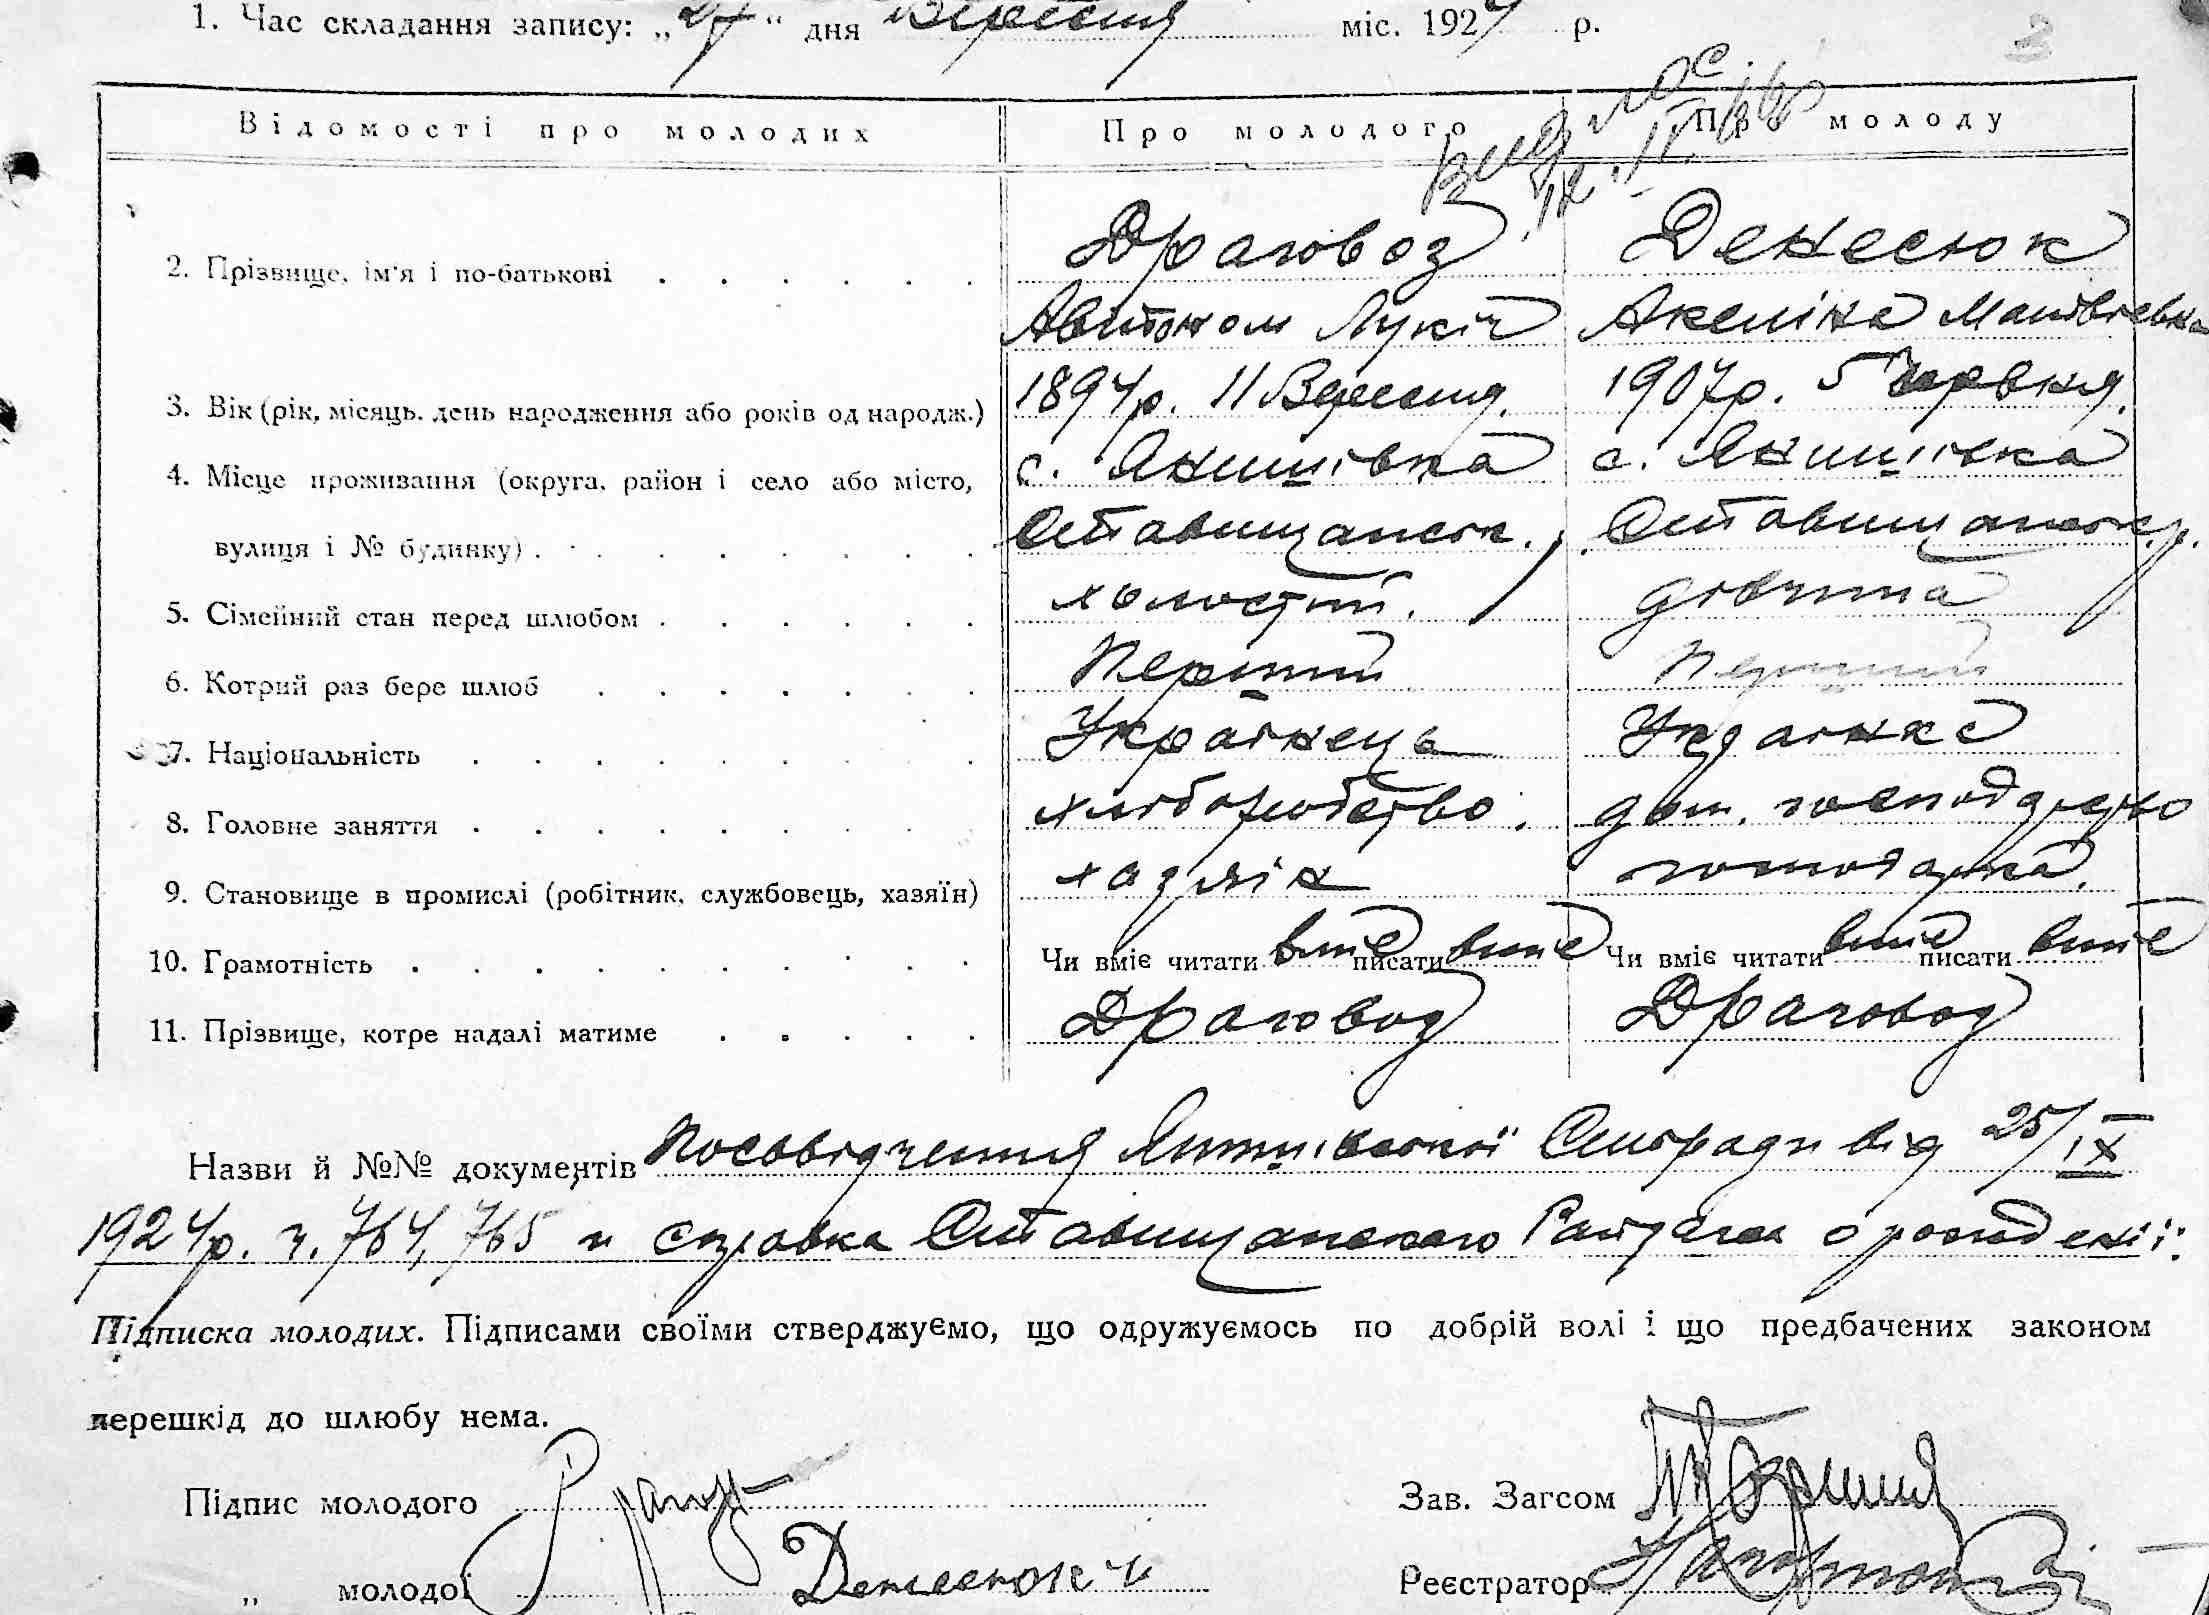 1. Час складання запису: „27“ дня Вересня міс. 1924 р.
3
Відомості про молодих Про молодого Про молоду
2. Прізвище, ім'я і по-батькові Драговоз Денесюк
Автоном Лукіч Акеліна Матвієвна
3. Вік (рік, місяць, день народження або років од народж.) 1894р. 11 Вересня. 1907р. 5 Червня.
4. Місце проживання (округа, район і село або місто, с. Янишівка с. Янишівка
вулиця і № будинку) Ставищанск. Ставищанск. р.
5. Сімейний стан перед шлюбом холостий. дівчина
6. Котрий раз бере шлюб Перший Перший
7. Національність Українець Українка
8. Головне заняття хліборобство. дом. господарство
9. Становище в промислі (робітник, службовець, хазяїн) хазяїн господарка.
10. Грамотність Чи вміє читати вміє писати вміє Чи вміє читати вміє писати вміє
11. Прізвище, котре надалі матиме Драговоз Драговоз
Назви й №№ документів Посовідчення Янишівської Сільради від 25/IX
1924р. ч. 764, 765 и справка Ставищанского Райзагса о рождении.
Підписка молодих. Підписами своїми стверджуємо, що одружуємось по добрій волі і що предбачених законом
перешкід до шлюбу нема.
Підпис молодого Зав. Загсом
„ молодої Денесюк Реєстратор